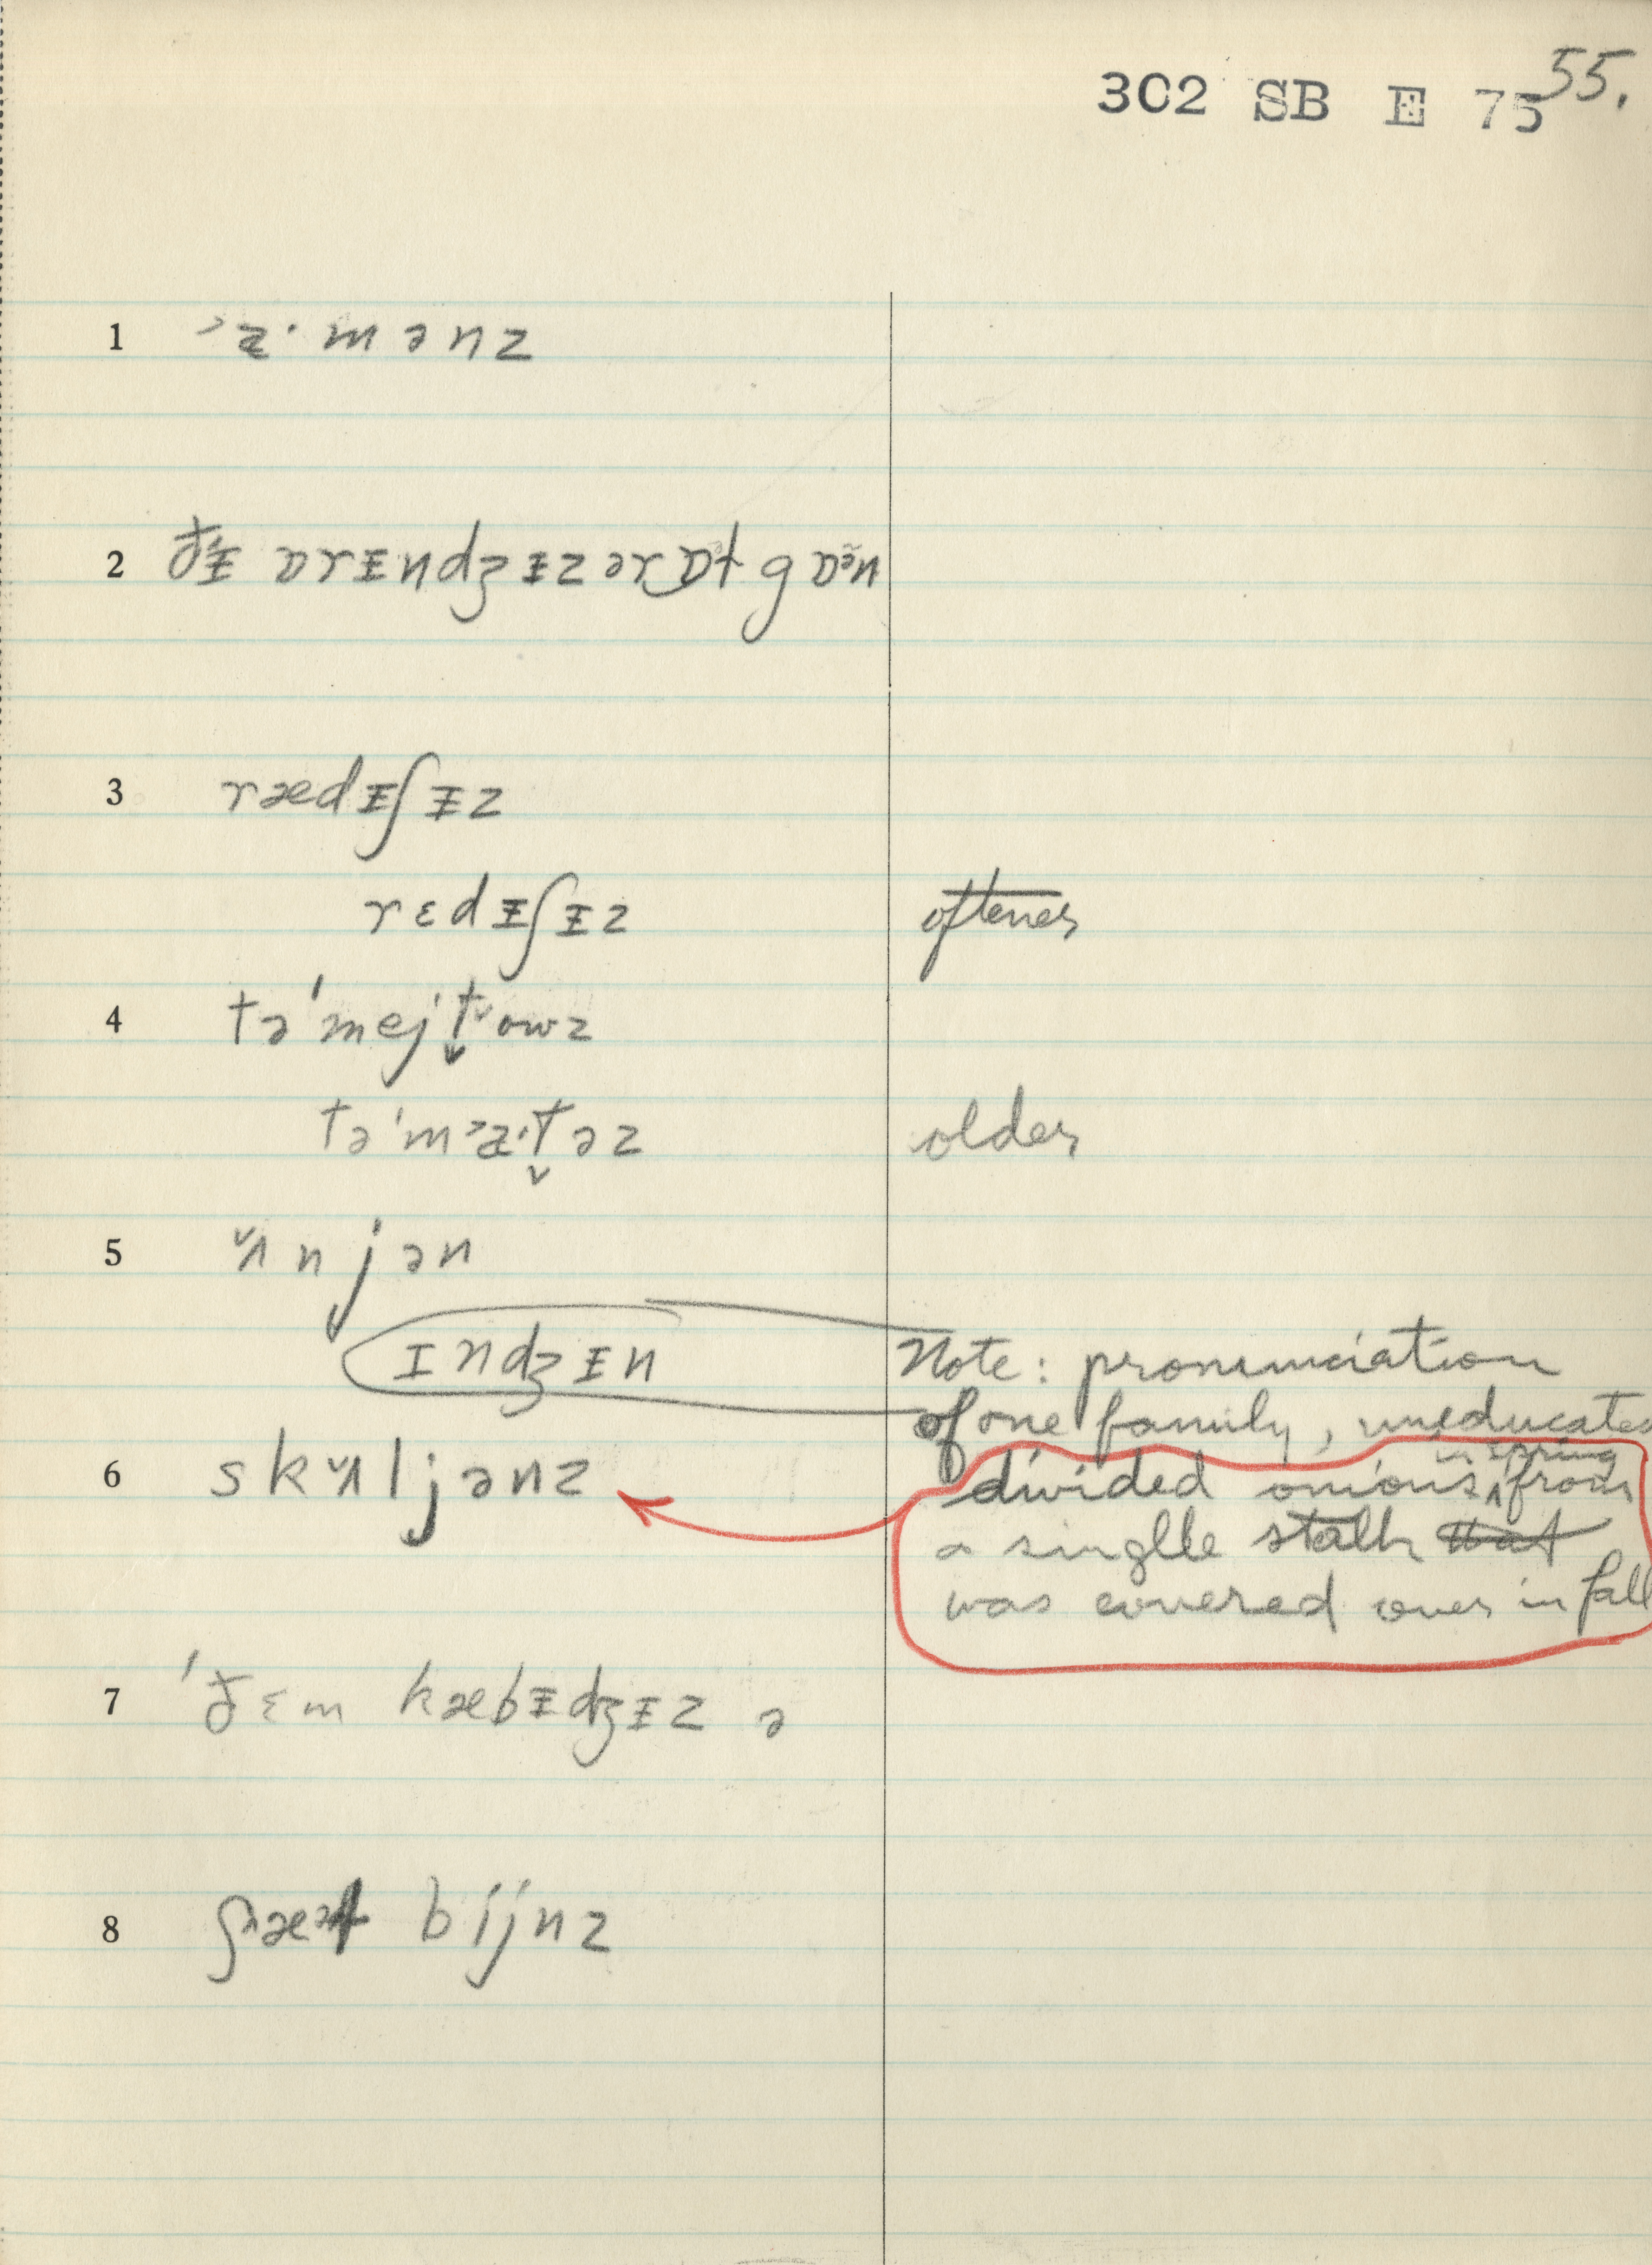 302 SB E 75 55.
1 ˃æ· m ə n z
2 ðɨ ɒrɪndʒɨz ər ɒɫ gɒᵊn
3 rædɨʃɨz
rɛdɨʃɨz oftener
4 tə'mejt̬owz
tə'm˃æ·t̬əz older
5 ʌ̌njən
ɪndʒɨn Note: pronunciation
of one family, uneducated
6 skʌ̌ljənz divided onions ‸ in spring from
a singlle stalk that
was covered over in fall
7 'ðɛm kæbɨdʒɨz ə
8 bijnz